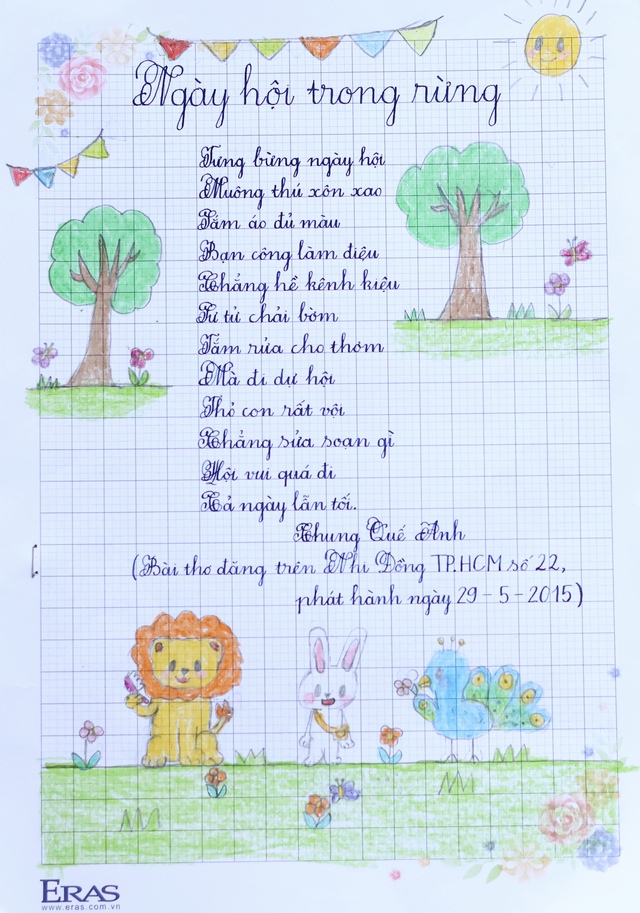 Ngày hội trong rừng
Tưng bừng ngày hội
Muông thú xôn xao
Sắm áo đủ màu
Bạn công làm điệu
Chẳng hề kênh kiệu
Sư tử chải bờm
Tắm rửa cho thơm
Mà đi dự hội
Thỏ con rất vội
Chẳng sửa soạn gì
Hội vui quá đi
Cả ngày lẫn tối.
Chung Quế Anh
(Bài thơ đăng trên Nhi Đồng TP.HCM số 22,
phát hành ngày 29 - 5 - 2015)
ERAS
www.eras.com.vn